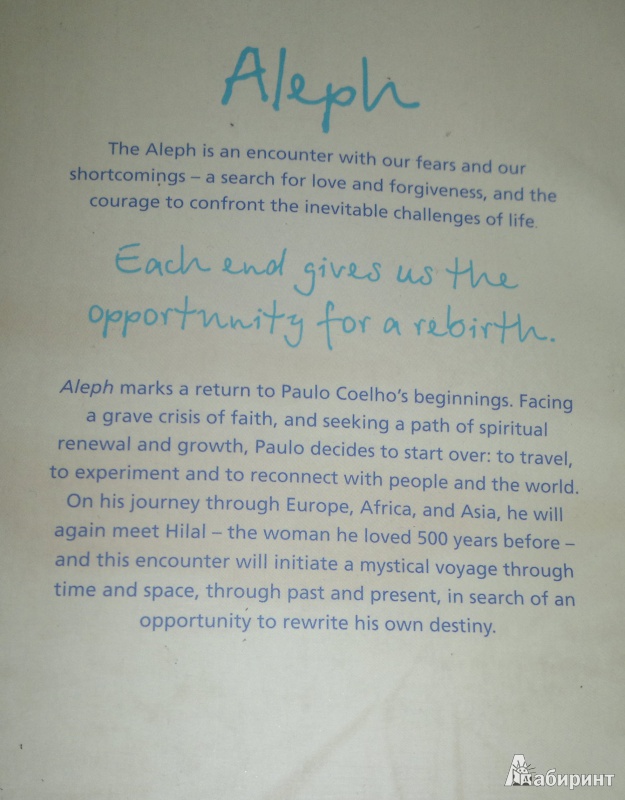 Aleph
The Aleph is an encounter with our fears and our
shortcomings – a search for love and forgiveness, and the
courage to confront the inevitable challenges of life.
Each end gives us the
opportunity for a rebirth.
Aleph marks a return to Paulo Coelho's beginnings. Facing
a grave crisis of faith, and seeking a path of spiritual
renewal and growth, Paulo decides to start over: to travel,
to experiment and to reconnect with people and the world.
On his journey through Europe, Africa, and Asia, he will
again meet Hilal – the woman he loved 500 years before –
and this encounter will initiate a mystical voyage through
time and space, through past and present, in search of an
opportunity to rewrite his own destiny.
Лабиринт